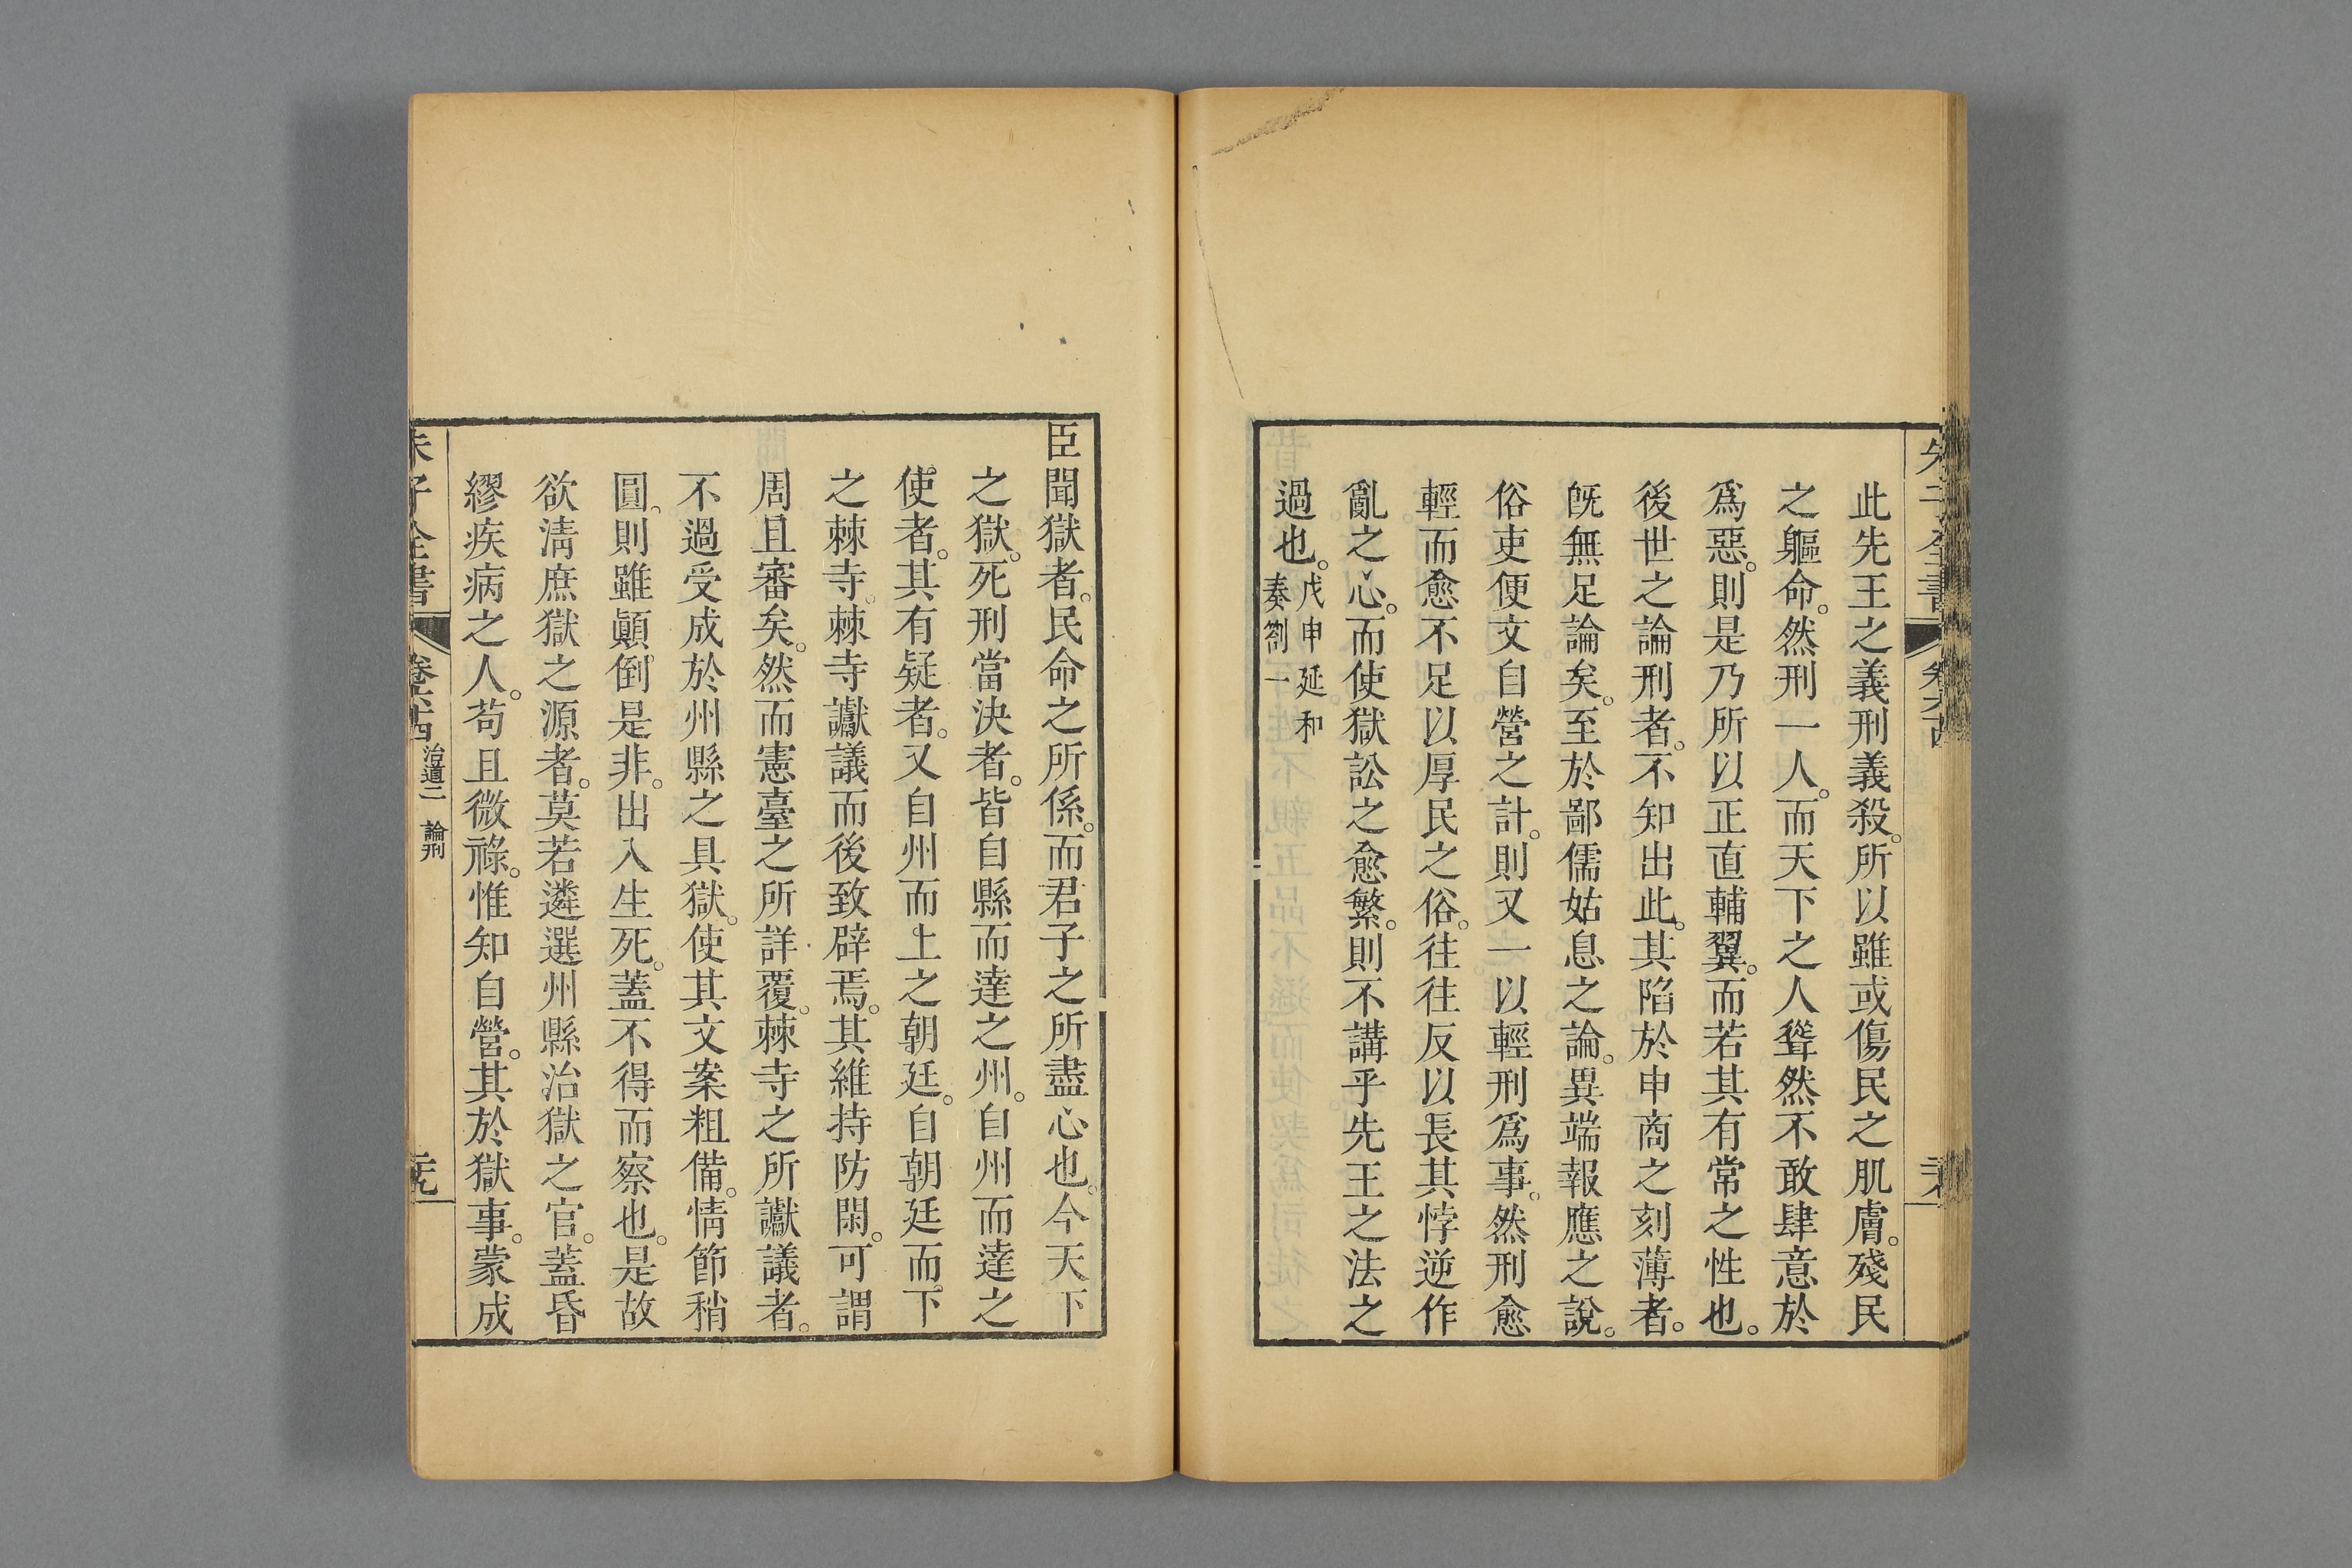 此先王之義刑義殺。所以雖或傷民之肌膚。殘民
之軀命。然刑一人。而天下之人聳然不敢肆意於
爲惡。則是乃所以正直輔翼。而若其有常之性也。
後世之論刑者。不知出此。其陷於申商之刻薄者。
旣無足論矣。至於鄙儒姑息之論。異端報應之說。
俗吏便文自營之計。則又一以輕刑爲事。然刑愈
輕而愈不足以厚民之俗。往往反以長其悖逆作
亂之心。而使獄訟之愈繁。則不講乎先王之法之
過也。戊申延和
奏劄一
臣聞獄者。民命之所係。而君子之所盡心也。今天下
之獄。死刑當決者。皆自縣而達之州。自州而達之
使者。其有疑者。又自州而上之朝廷。自朝廷而下
之棘寺。棘寺讞議而後致辟焉。其維持防閑。可謂
周且審矣。然而憲臺之所詳覆。棘寺之所讞議者。
不過受成於州縣之具獄。使其文案粗備。情節稍
圓。則雖顚倒是非。出入生死。蓋不得而察也。是故
欲淸庶獄之源者。莫若遴選州縣治獄之官。蓋昏
繆疾病之人。苟且微祿。惟知自營。其於獄事。蒙成
朱子全書
卷六十四
治道二 論刑